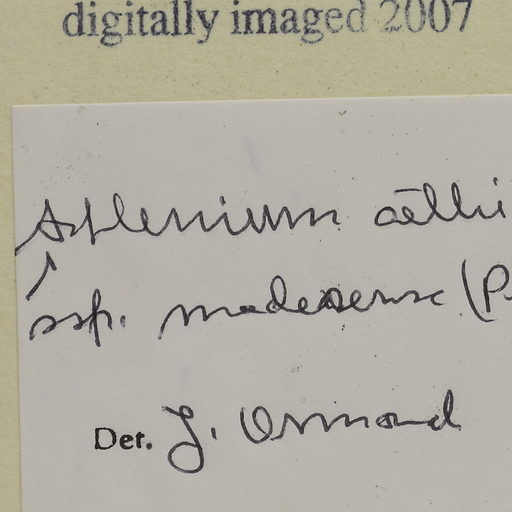 digitally imaged 2007
Asplenium aethi
ssp. maderense (P
Det. J. Ormond